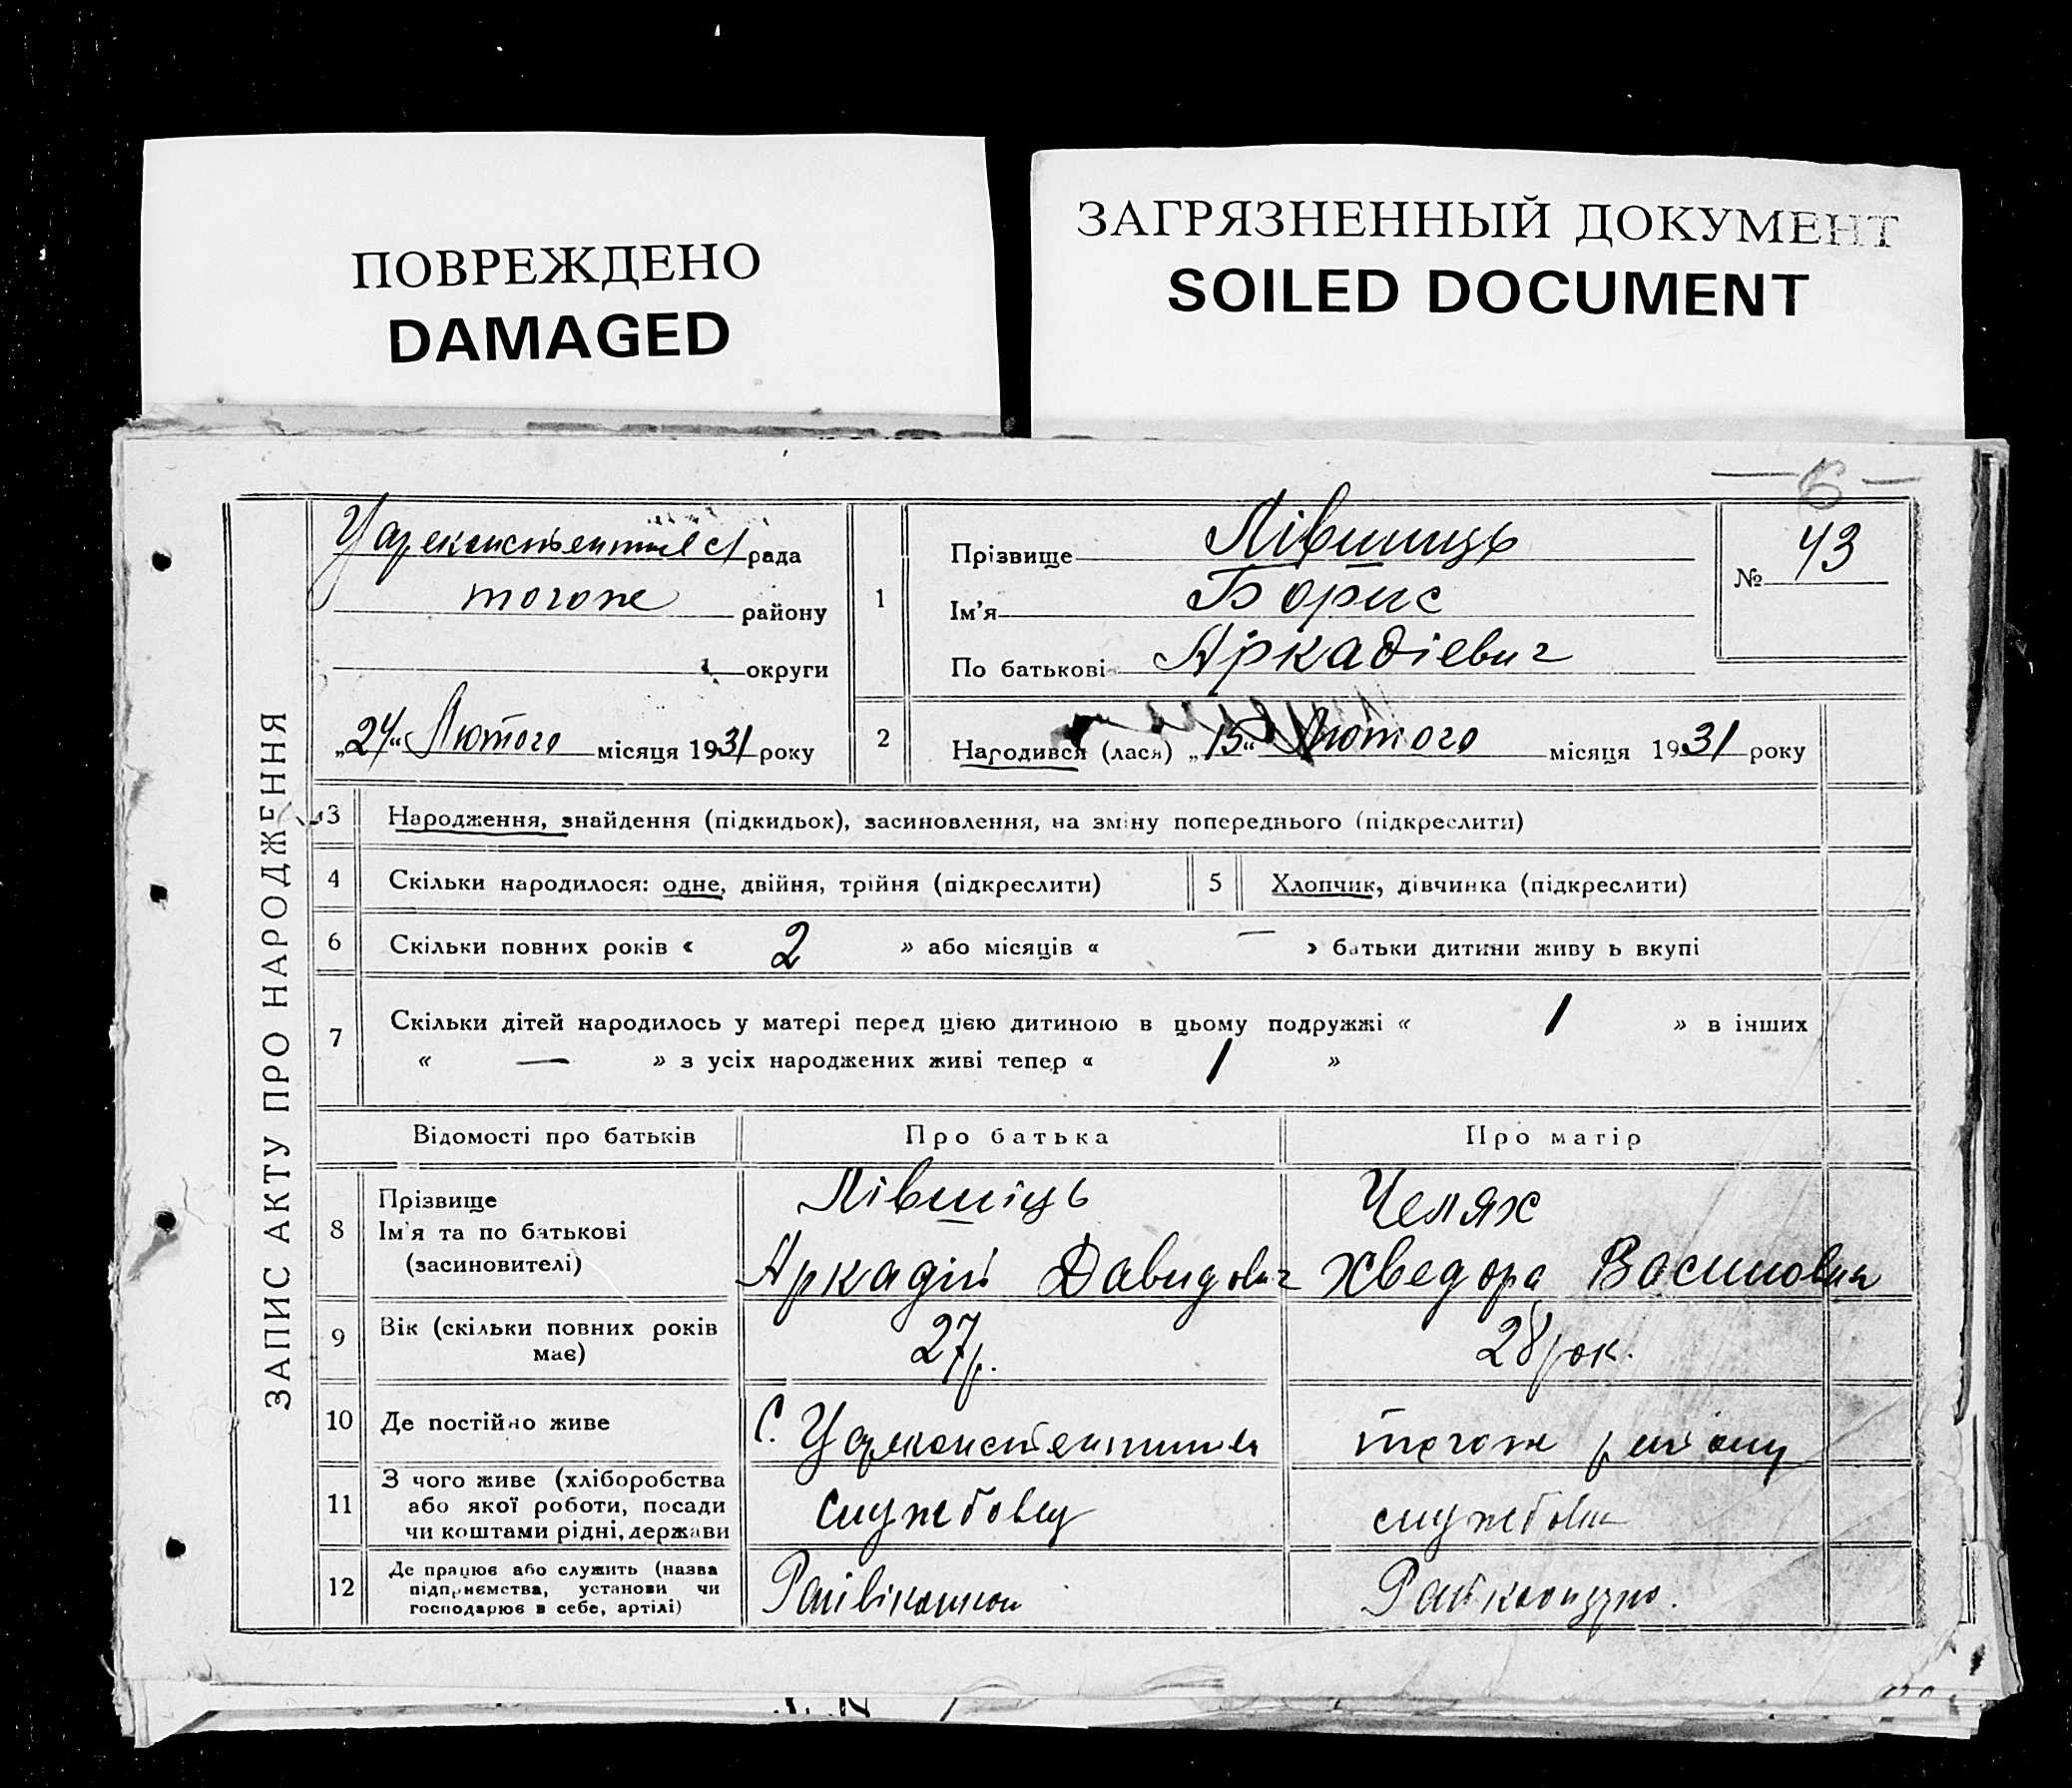 ПОВРЕЖДЕНО
DAMAGED
ЗАГРЯЗНЕННЫЙ ДОКУМЕНТ
SOILED DOCUMENT
— 6 —
ЗАПИС АКТУ ПРО НАРОДЖЕННЯ
рада
тогоже району
округи
„24“ Лютого місяця 1931 року
1
Прізвище Лівшиць
Ім’я Борис
По батькові Аркадіевич
№ 43
2
Народився (лася) „15“ Лютого місяця 1931 року
3 Народження, знайдення (підкидьок), засиновлення, на зміну попереднього (підкреслити)
4 Скільки народилося: одне, двійня, трійня (підкреслити)
5 Хлопчик, дівчинка (підкреслити)
6 Скільки повних років « 2 » або місяців « — » батьки дитини живуть вкупі
7 Скільки дітей народилось у матері перед цією дитиною в цьому подружжі « 1 » в інших
« — » з усіх народжених живі тепер « 1 »
Відомості про батьків Про батька Про матір
8 Прізвище
Ім’я та по батькові
(засиновителі)
Лівшіць
Аркадій Давидович
Челях
Хведора
9 Вік (скільки повних років
має)
27 р.
28 рок.
10 Де постійно живе
С.
тогоже району
11 З чого живе (хліборобства
або якої роботи, посади
чи коштами рідні, держави
службовец
службовец
12 Де працює або служить (назва
підприємства, установи чи
господарює в себе, артілі)